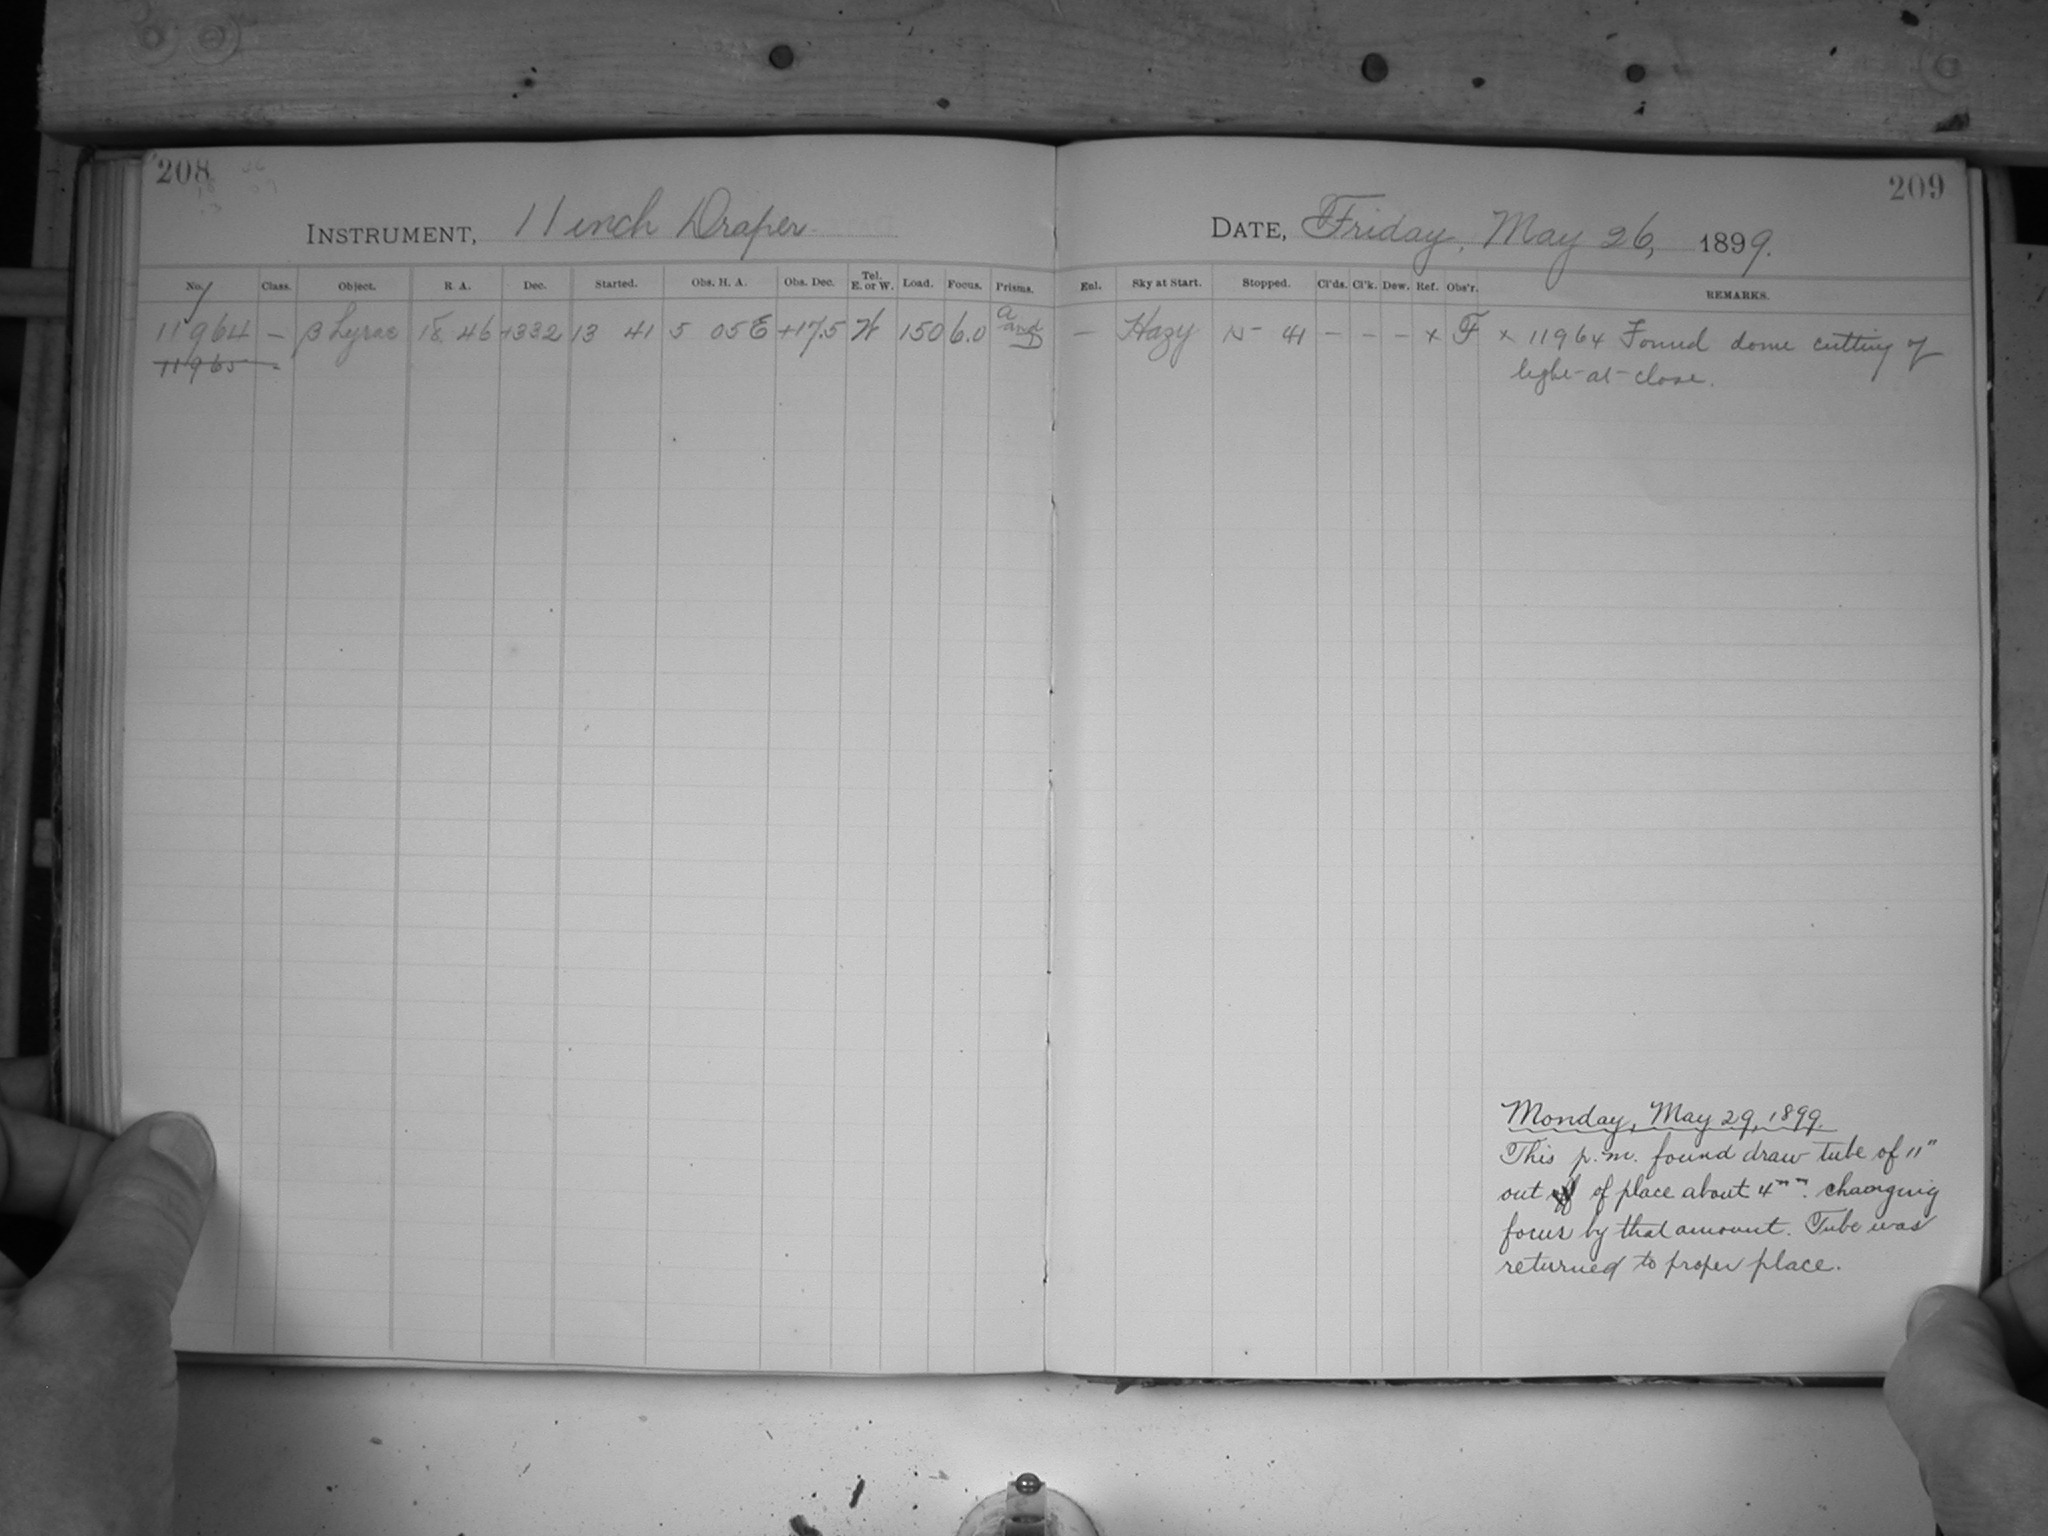 208
209
INSTRUMENT, 11 inch Draper
DATE, Friday, May 26, 1899.
No. Class. Object. R. A. Dec. Started. Obs. H. A. Obs. Dec. Tel. E. or W. Load. Focus. Prisms. Enl. Sky at Start. Stopped. Cl'ds. Cl'k. Dew. Ref. Obs'r. REMARKS.
11964 — β Lyrae 18 46 +332 13 41 5 05 E +17.5 W 150 6.0 a and D — Hazy 15 41 — — — x F x 11964 Found dome cutting of
light at close.
11965
Monday, May 29, 1899.
This p.m. found draw tube of 11"
out of place about 4mm. changing
focus by that amount. Tube was
returned to proper place.